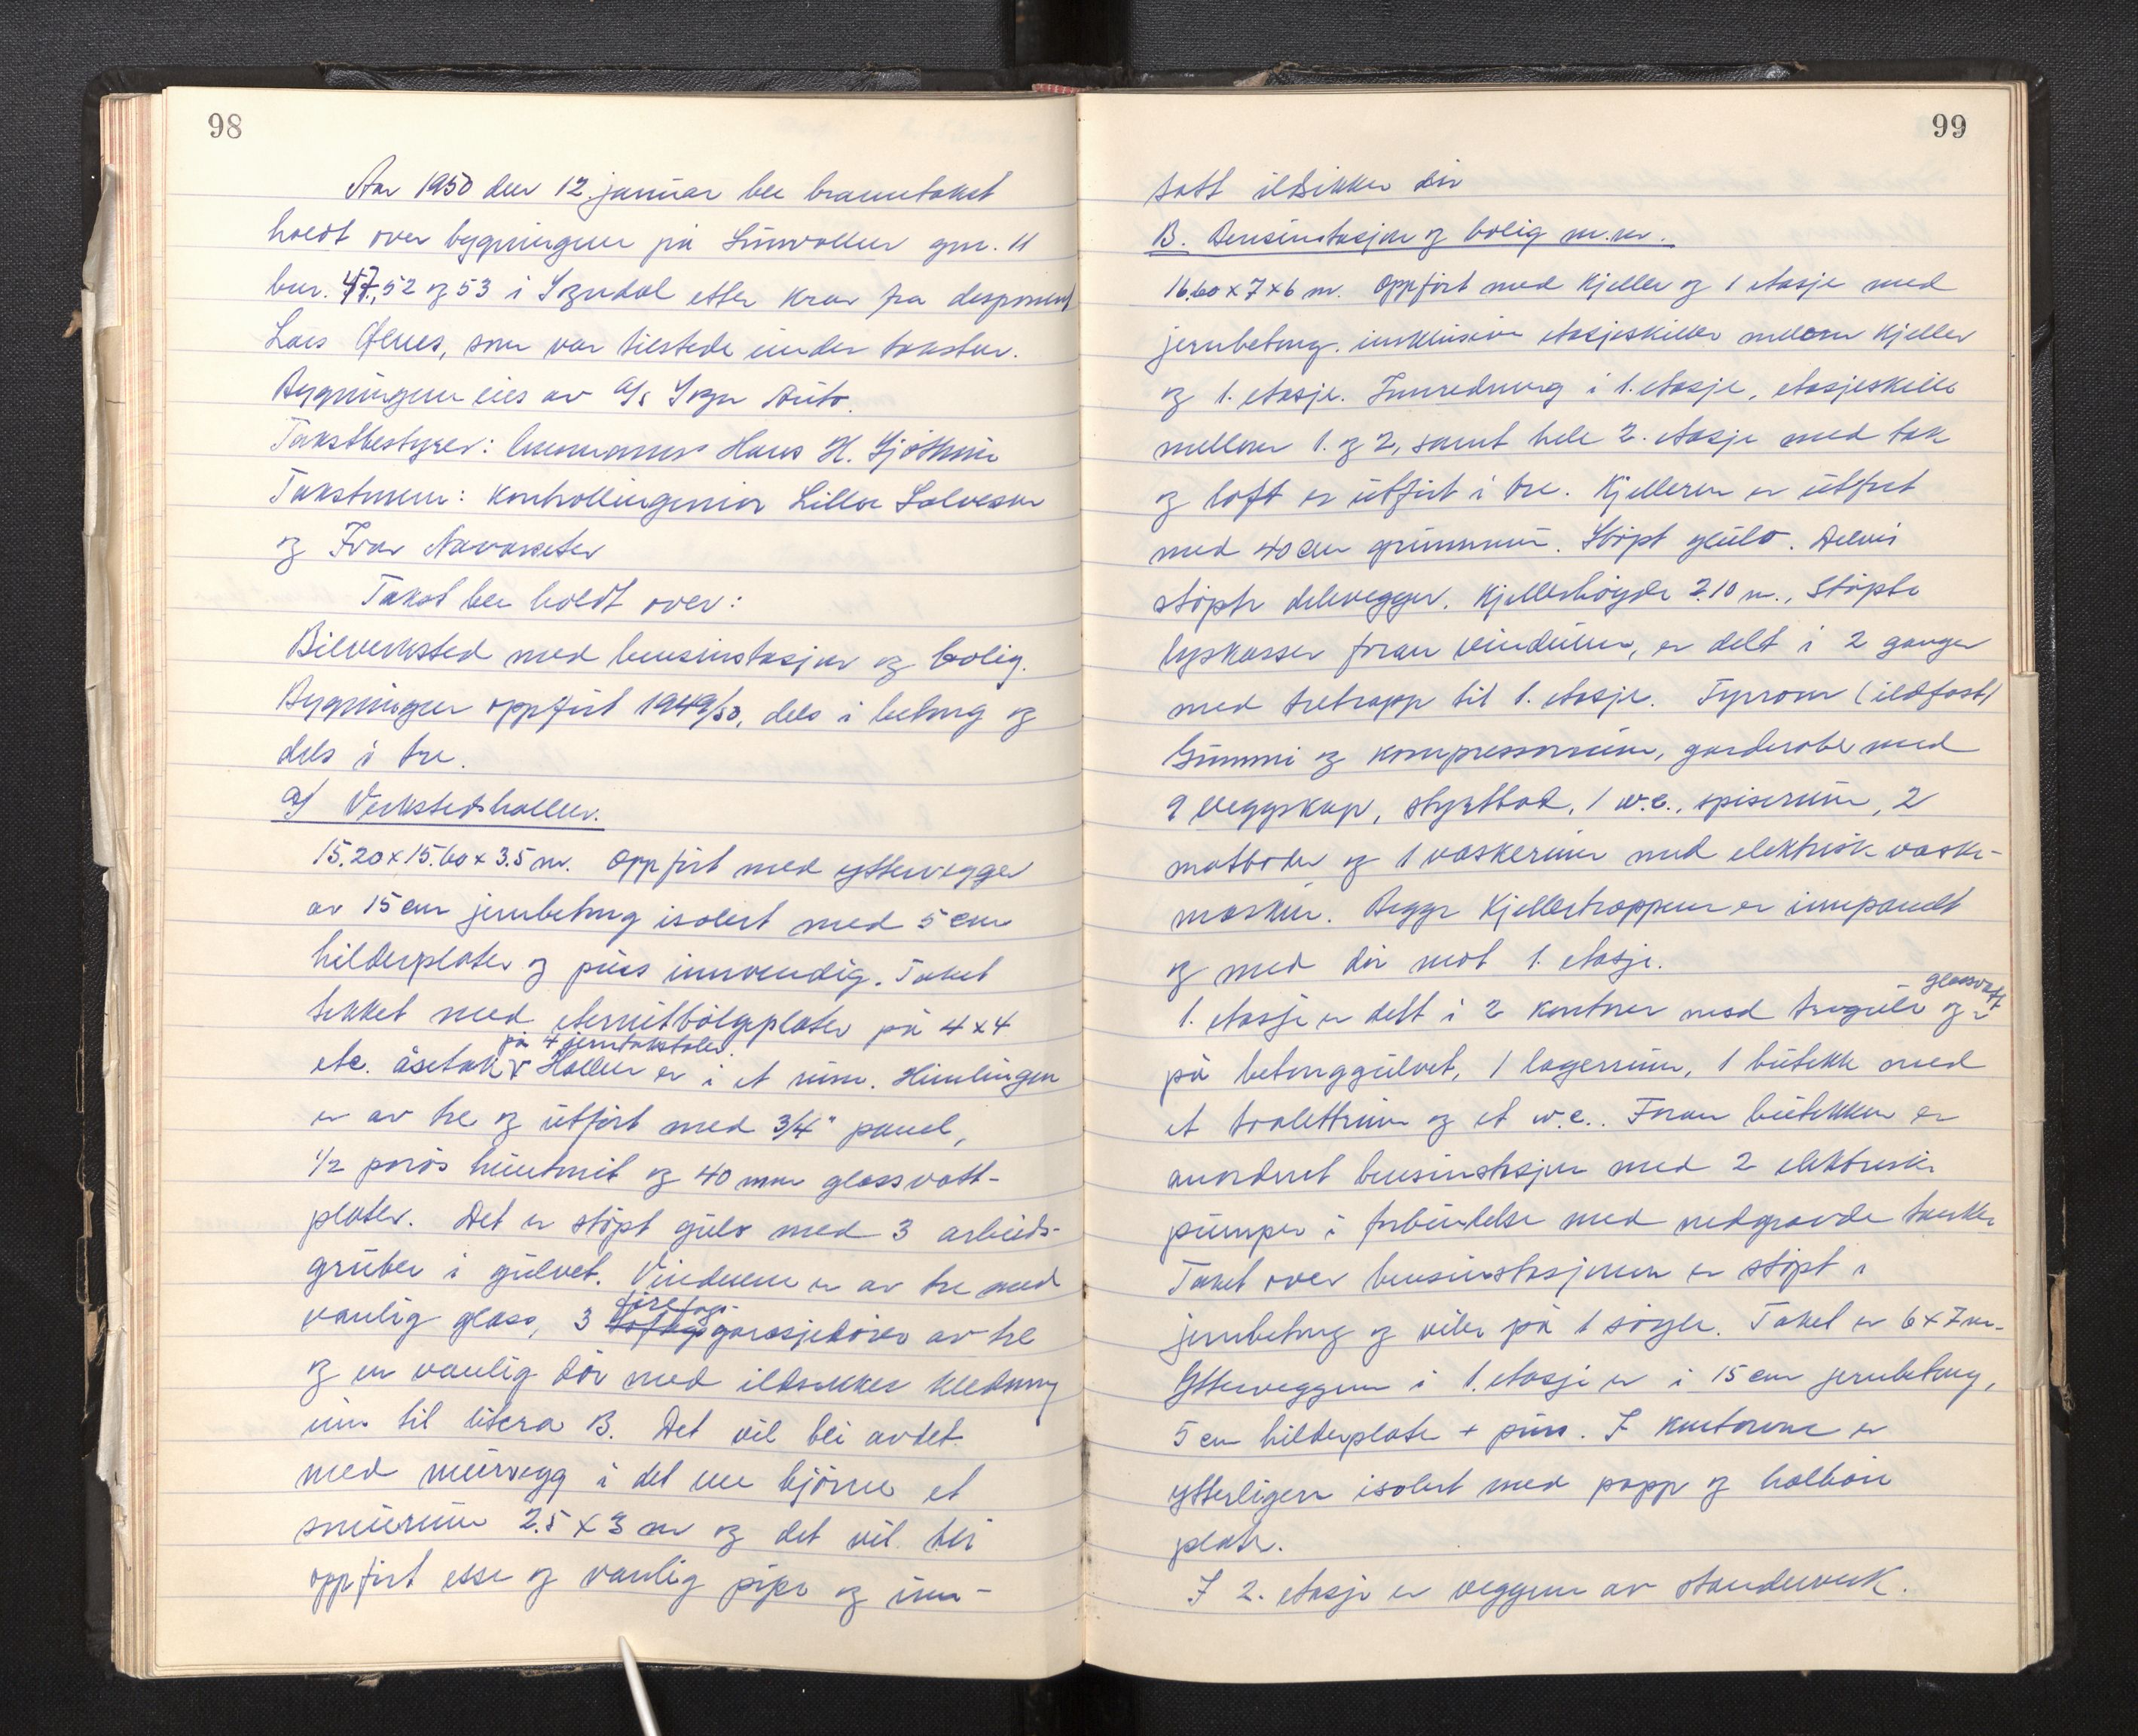 98
Aar 1950 den 12. januar ble branntakst
holdt over bygningene på Sunvollen gnr. 11
bnr. 47, 52 og 53 i Sogndal etter krav fra disponent
Lars, som var tilstede under taksten.
Bygningene eies av A/s Sogn Auto.
Takstbestyrer: lensmann Hans H.
Takstmenn: Kontrollingeniør Salvesen
og Ivar Navarsete
Takst ble holdt over:
Bilverksted med bensinstasjon og bolig.
Bygningen oppført 1949/50, dels i betong og
dels i tre.
a) Verkstedshallen.
15.20 x 15.60 x 3.5 m. Oppført med yttervegger
av 15 cm jernbetong isolert med 5 cm
hilderplater og puss innvendig. Taket
tekket med eternitbölgeplater på 4 x 4
på 4 jerntakstoler.
etc. åsetak v Hallen er i et rum. Himlingen
er av tre og utført med 3/4" panel,
1/2 porös huntonit og 40 mm glassvatt-
plater. Det er stöpt gulv med 3 arbeids-
gruber i gulvet. Vinduene er av tre med
firefags-
vanlig glass, 3 garasjedører av tre
og en vanlig dör med ildsikker kledning
inn til litera B. Det vil bli avdet
med murvegg i det ene hjörne et
smierum 2.5 x 3 m og det vil bli
oppført esse og vanlig pipe og inn-
99
satt ildsikker dör
B. Bensinstasjon og bolig m.m.
16.60 x 7 x 6 m. Oppført med kjeller og 1 etasje med
jernbetong. inklusive etasjeskille mellom kjeller
og 1. etasje. Innredning i 1. etasje, etasjeskille
mellom 1. og 2, samt hele 2. etasje med tak
og loft er utført i tre. Kjelleren er utført
med 40 cm grunnmur. Stöpt gulv. Delvis
stöpte delevegger. Kjellerhöyde 2.10 m., Stöpte
lyskasser foran vinduene, er delt i 2 ganger
med tretrapp til 1. etasje. Fyrrom (ildfast)
Gummi og kompressorrum, garderobe med
9 veggskap, styrtbad, 1 w.c., spiserum, 2
matboder og 1 vaskerum med elektrisk vaske-
maskin. Begge kjellertrappene er innpanelt
og med dör mot 1. etasje.
glassvatt
1. etasje er delt i 2 kontorer med tregulv og
på betonggulvet, 1 lagerrum, 1 butikk med
et toalettrum og et w.c.. Foran butikken er
anordnet bensinstasjon med 2 elektriske
pumper i forbindelse med nedgravde tanker
Taket over bensinstasjonen er stöpt i
jernbetong og viler på 1 söyle. Taket er 6 x 7 m.
Ytterveggene i 1. etasje er i 15 cm jernbetong,
5 cm hilderplate + puss. I kontorene er
ytterligere isolert med papp og halvhård
plate.
I 2. etasje er veggene av standerverk.